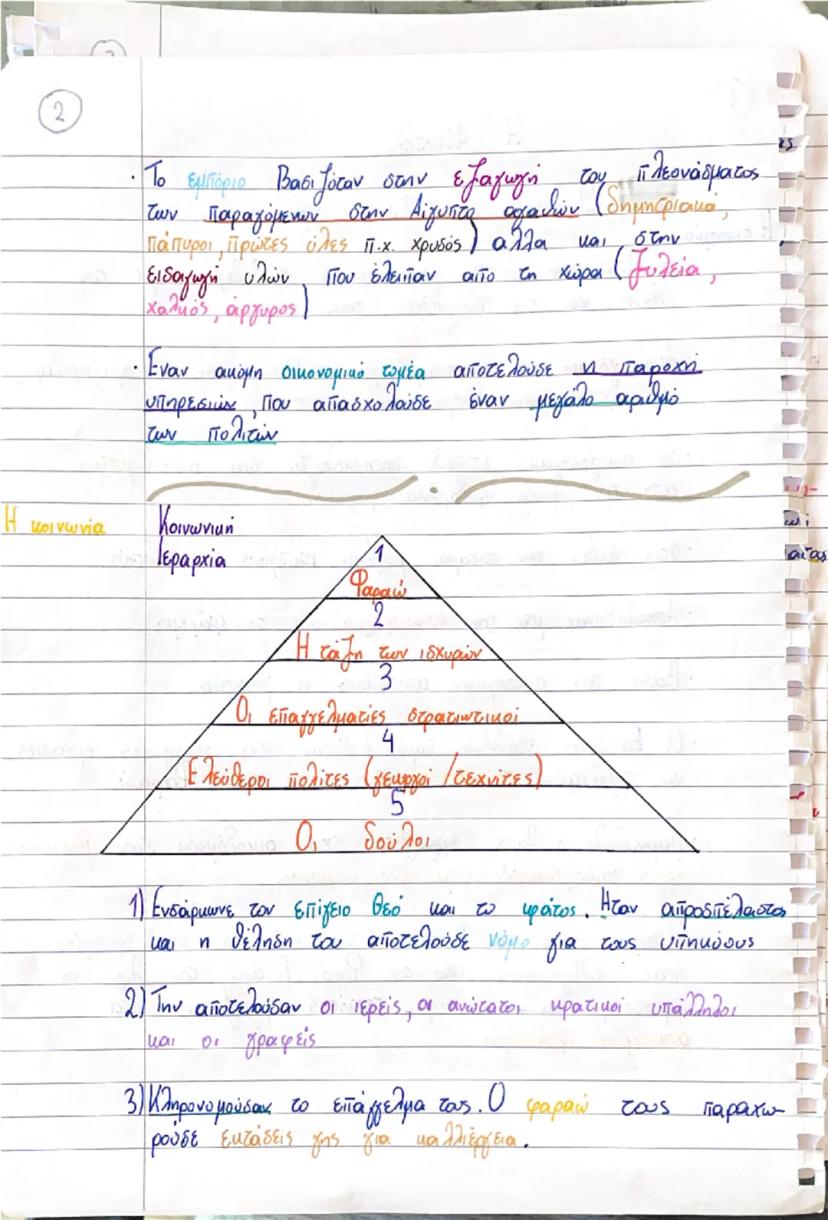 2
· Το εμπόριο βασιζόταν στην εξαγωγή του πλεονάσματος
των παραγόμενων στην Αίγυπτο αγαθών (δημητριακά,
πάπυροι, πρώτες ύλες π.χ. χρυσός) αλλα και στην
εισαγωγή υλών, που έλειπαν απο τη χώρα (ξυλεία,
χαλκός, άργυρος)
· Έναν ακόμη οικονομικό τομέα αποτελούσε η παροχή
υπηρεσιών, που απασχολούσε έναν μεγάλο αριθμό
των πολιτών
Η κοινωνία
Κοινωνική
Ιεραρχία
1
Φαραώ
2
Η τάξη των ισχυρών
3
Οι επαγγελματίες στρατιωτικοί
4
Ελεύθεροι πολίτες (γεωργοί / τεχνίτες)
5
Οι δούλοι
1) Ενσάρκωνε τον επίγειο θεό και το κράτος. Ήταν απροσπέλαστος
και η θέληση του αποτελούσε νόμο για τους υπηκόους
2) Την αποτελούσαν οι ιερείς, οι ανώτατοι κρατικοί υπάλληλοι
και οι γραφείς
3) Κληρονομούσαν το επάγγελμα τους. Ο φαραώ τους παραχω-
ρούσε εκτάσεις γης για καλλιέργεια.